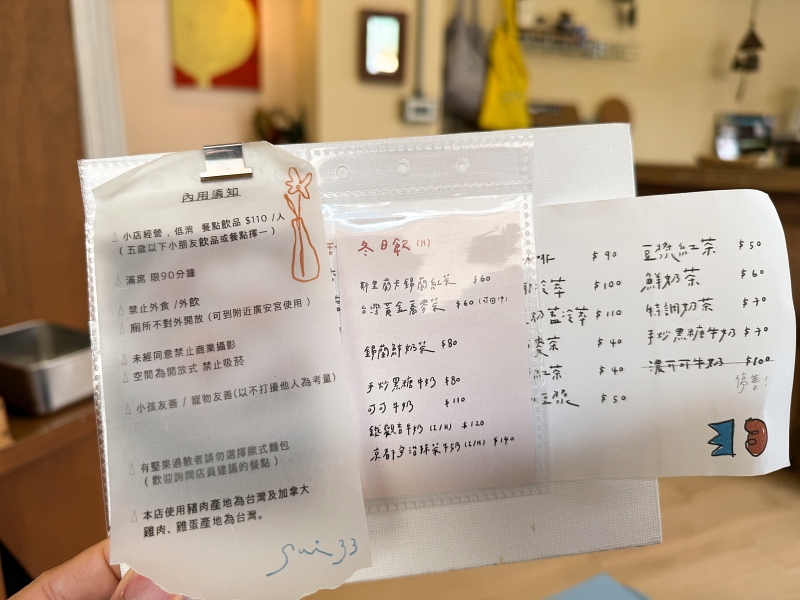 內用須知
小店經營，低消 餐點飲品 $110 /人
（五歲以下小朋友飲品或餐點擇一）
滿席 限90分鐘
禁止外食 /外飲
廁所不對外開放（可到附近廣安宮使用）
未經同意禁止商業攝影
空間為開放式 禁止吸菸
小孩友善 / 寵物友善(以不打擾他人為考量)
有堅果過敏者請勿選擇歐式麵包
（歡迎詢問店員建議的餐點）
本店使用豬肉產地為台灣及加拿大
雞肉、雞蛋產地為台灣。
冬日飲 (H)
斯里蘭卡錫蘭紅茶 $60
台灣黃金蕎麥茶 $60 (可回沖)
錫蘭鮮奶茶 $80
手炒黑糖牛奶 $80
可可牛奶 $110
鐵觀音牛奶 (I/H) $120
京都宇治抹茶牛奶 (I/H) $140
啡 $90
冷萃 $100
奶藍冷萃 $110
麥茶 $40
紅茶 $40
豆漿 $50
豆漿紅茶 $50
鮮奶茶 $60
特調奶茶 $70
手炒黑糖牛奶 $70
濃可可牛奶 $100
停售!